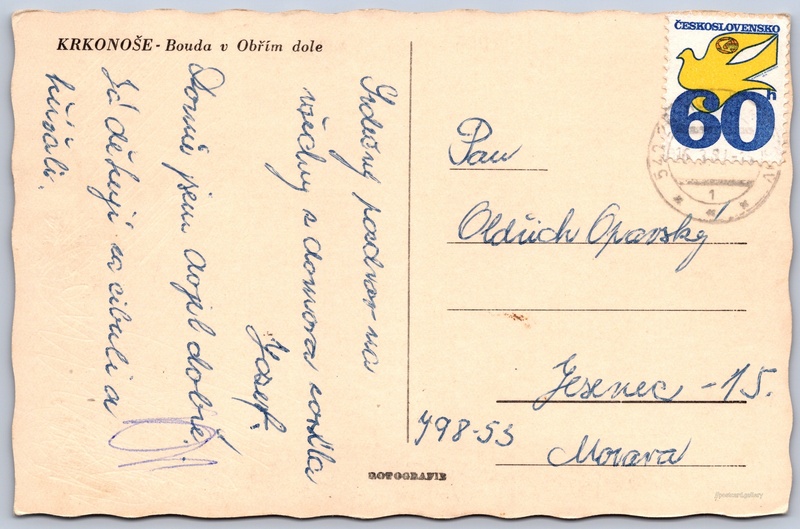 KRKONOŠE - Bouda v Obřím dole
Srdečný pozdrav na
všechny z domova
Josef.
Domů jsem dojel dobře.
Já děkuji za cibuli a
ČESKOSLOVENSKO
60h
1
Pan
Oldřich Opavský
Jesenec - 15.
798-53
Morava
ROTOGRAFIE